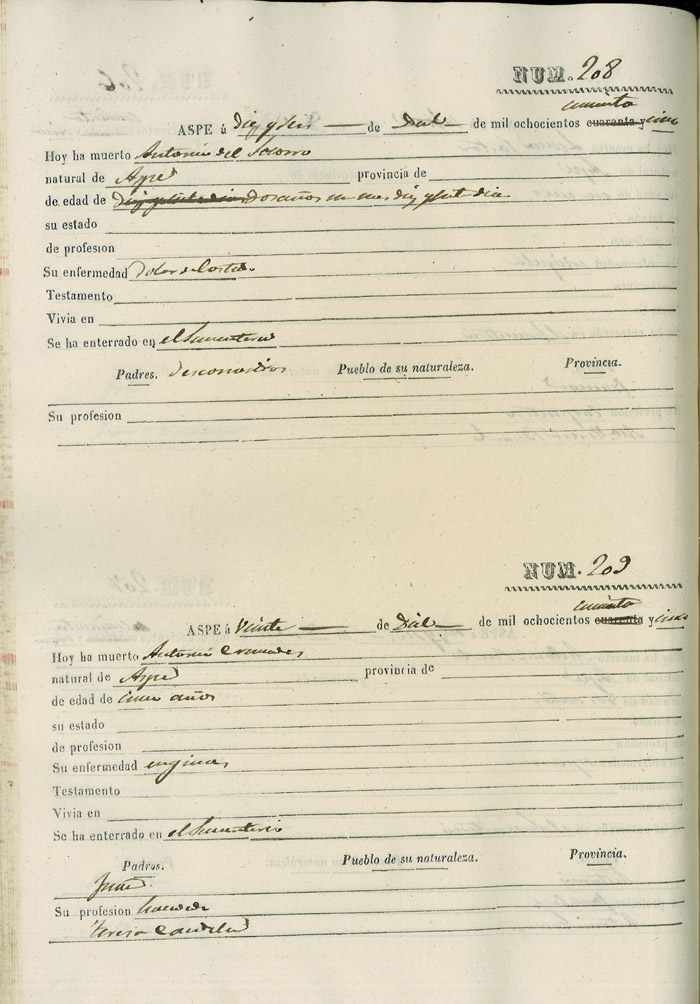 NUM. 208
cincuenta
ASPE á Diez y seis de Dbre de mil ochocientos cuarenta y cinco
Hoy ha muerto Antonio del Socorro
natural de Aspe provincia de
de edad de Dos años un mes diez y siete dias
su estado
de profesion
Su enfermedad Dolor de Costado
Testamento
Vivia en
Se ha enterrado en el Sementerio
Padres. desconocidos Pueblo de su naturaleza. Provincia.
Su profesion
NUM. 209
cincuenta
ASPE á Veinte de Dbre de mil ochocientos cuarenta y cinco
Hoy ha muerto Antonio
natural de Aspe provincia de
de edad de cinco años
su estado
de profesion
Su enfermedad anginas
Testamento
Vivia en
Se ha enterrado en el Sementerio
Padres. Pueblo de su naturaleza. Provincia.
Juan
Su profesion
Teresa Candela